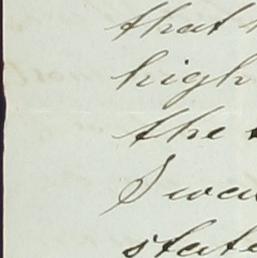 that
high
the
Swa
state